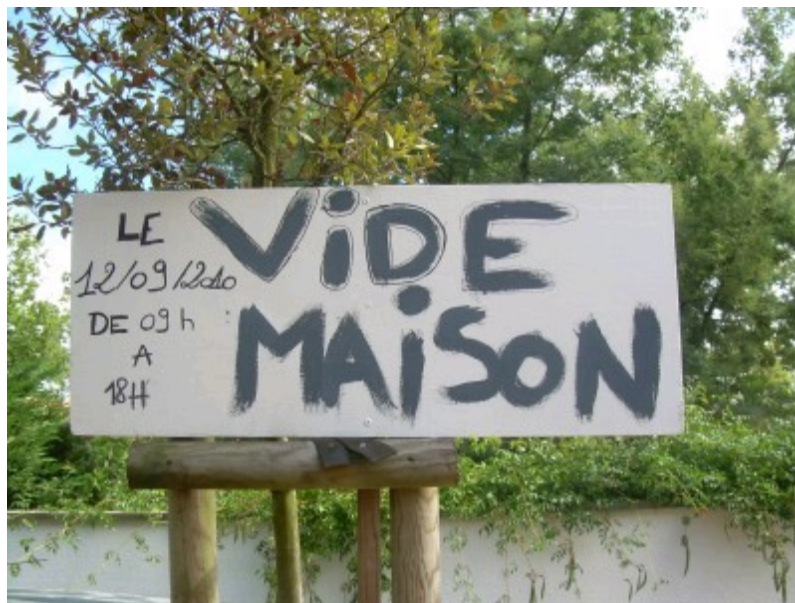 LE
12/09/2010
DE 09h
A
18H
ViDE
MAiSON